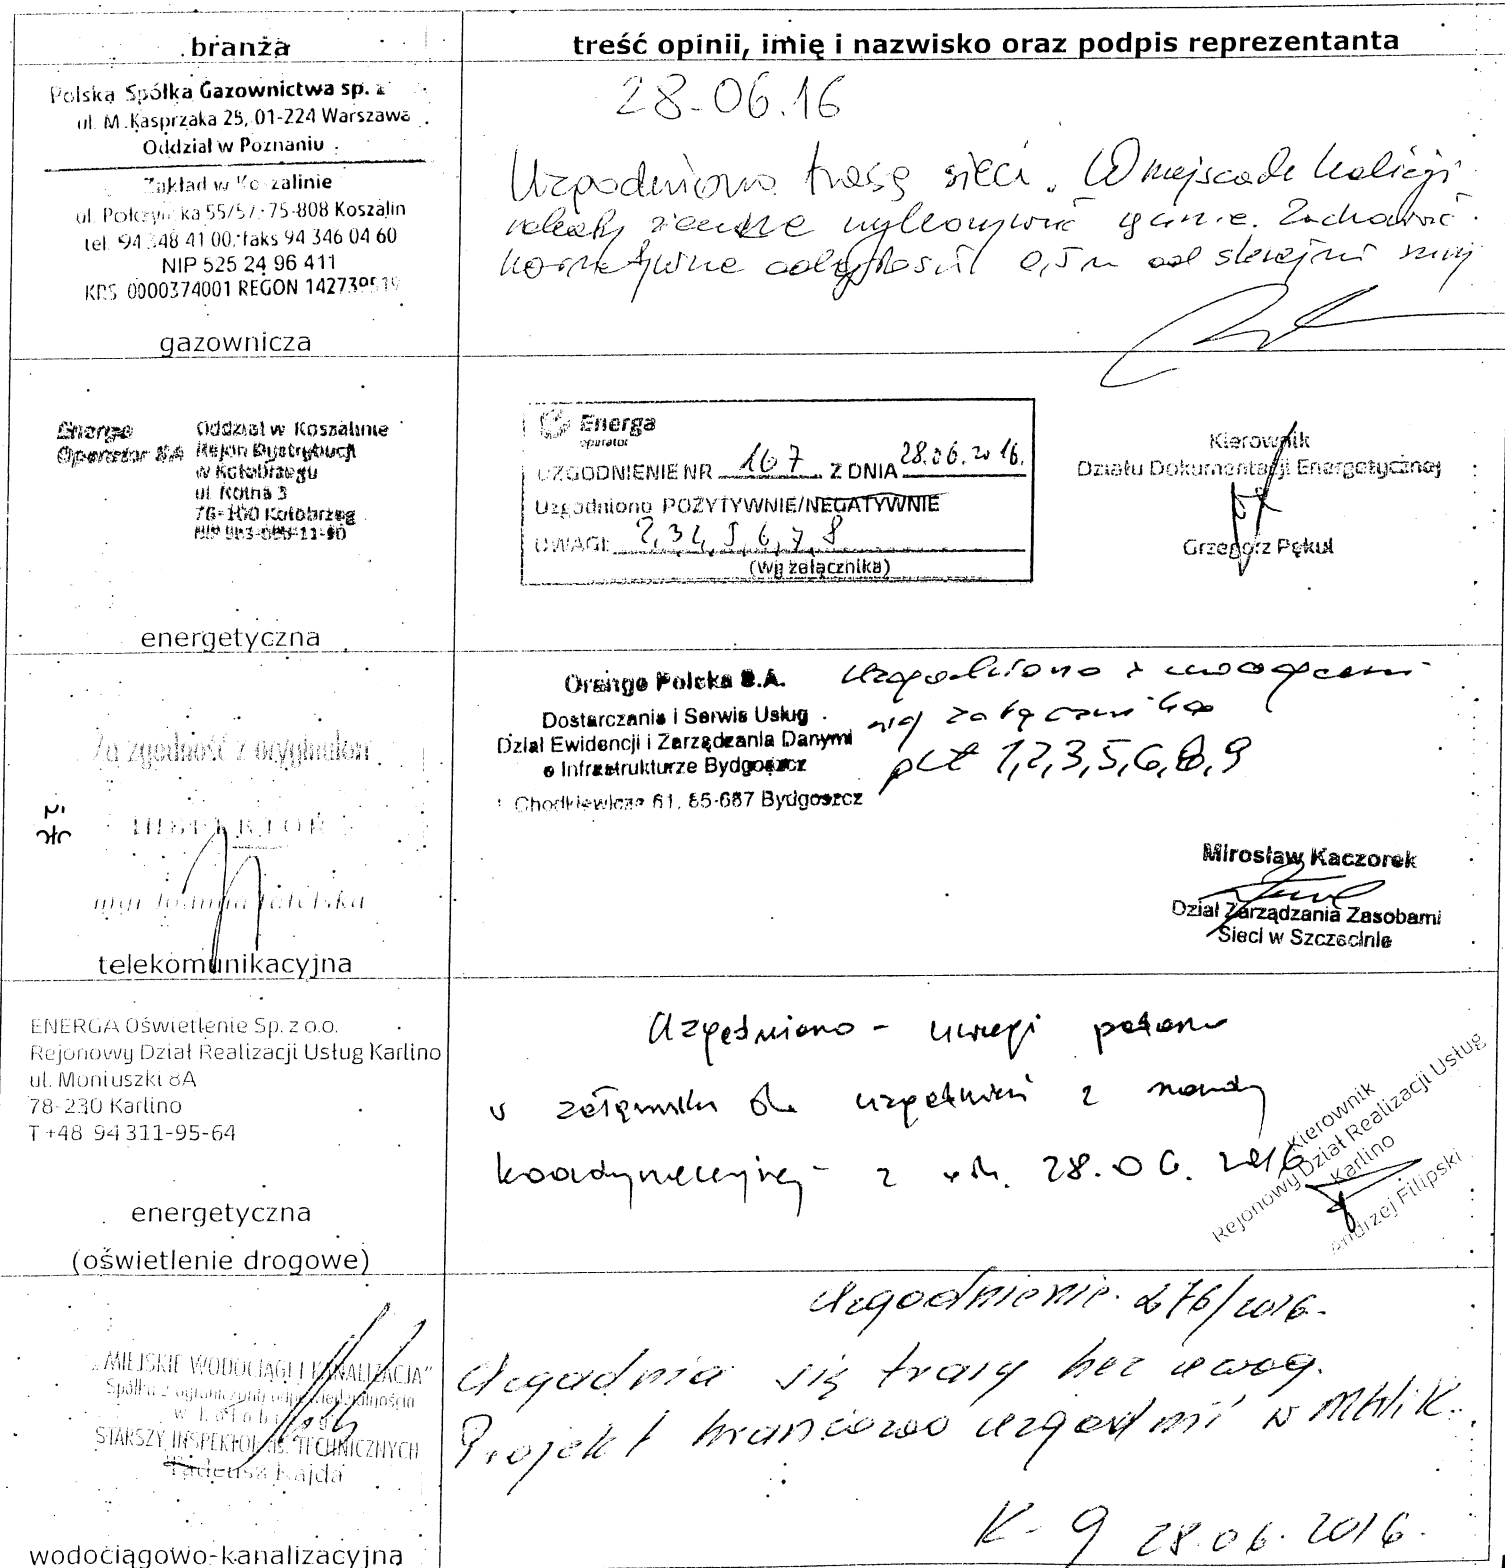 branża
treść opinii, imię i nazwisko oraz podpis reprezentanta
Polska Spółka Gazownictwa sp. z
ul. M. Kasprzaka 25, 01-224 Warszawa
Oddział w Poznaniu
Zakład w Koszalinie
ul. Połczyńska 55/57, 75-808 Koszalin
tel. 94 348 41 00, faks 94 346 04 60
NIP 525 24 96 411
KRS 0000374001 REGON 142739519
gazownicza
28-06.16
Uzgodniono trasę sieci. W miejscach kolizji
roboty ziemne wykonywać ręcznie. Zachować
odległość 0,5 m od
Energa Operator SA
Oddział w Koszalinie
Rejon Dystrybucji
w Kołobrzegu
ul. Rolna 3
78-100 Kołobrzeg
energetyczna
Energa
operator
UZGODNIENIE NR 167 Z DNIA 28.06.2016.
Uzgodniono POZYTYWNIE/NEGATYWNIE
UWAGI: 2,3,4,5,6,7,8
(Wg załącznika)
Kierownik
Działu Dokumentacji Energetycznej
Grzegorz Pękul
Za zgodność z oryginałem
INSPEKTOR
mgr Joanna
telekomunikacyjna
Orange Polska S.A.
Dostarczanie i Serwis Usług
Dział Ewidencji i Zarządzania Danymi
o Infrastrukturze Bydgoszcz
Chodkiewicza 61, 85-667 Bydgoszcz
Uzgodniono z uwagami
wg załącznika
pkt 1,2,3,5,6,8,9
Mirosław Kaczorek
Dział Zarządzania Zasobami
Sieci w Szczecinie
ENERGA Oświetlenie Sp. z o.o.
Rejonowy Dział Realizacji Usług Karlino
ul. Moniuszki 8A
78-230 Karlino
T +48 94 311-95-64
energetyczna
(oświetlenie drogowe)
Uzgodniono - uwagi podano
w załączniku do uzgodnień z narady
koordynacyjnej - z dn. 28.06.2016
Kierownik
Rejonowy Dział Realizacji Usług
Karlino
Andrzej Filipski
"MIEJSKIE WODOCIĄGI I KANALIZACJA"
Spółka z ograniczoną odpowiedzialnością
STARSZY INSPEKTOR ds. TECHNICZNYCH
Tadeusz Kajda
wodociągowo-kanalizacyjna
Uzgodnienie 276/2016.
Uzgadnia się trasy bez uwag.
Projekt branżowo uzgodnić w MWiK.
K-9 28.06.2016.